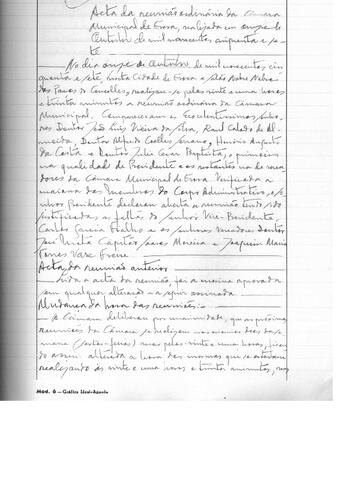 Acta da reunião ordinária da Câmara
Municipal de Evora, realizada em onze de
Outubro de mil novecentos cinquenta e se-
te
No dia onze de Outubro de mil novecentos cin
quenta e sete, nesta Cidade de Evora e Salão Nobre
dos Paços do Concelho, realizou-se pelas vinte e uma horas
e trinta minutos a reunião ordinária da Câmara
Municipal. Compareceram os Excelentissimos Senho-
res Doutor José Luis Vieira da Silva, Raul Calado de Al-
meida, Doutor Alfredo Coelho Serrano, Honório Augusto
da Costa e Doutor Julio Cesar Baptista, o primeiro
na qualidade de Presidente e os restantes na de verea
dores da Câmara Municipal de Evora. Verificada a
maioria dos Membros do Corpo Administrativo, o Se-
nhor Presidente declarou aberta a reunião tendo sido
justificadas as faltas do Senhor Vice-Presidente,
Carlos Garcia Fialho e os senhores vereadores Doutor
José Capitão Moreira e Joaquim Maria
Torres Vaz Freire
Acta da reunião anterior
Lida a acta da reunião, foi a mesma aprovada
sem qualquer alteração e a seguir assinada
Mudança da hora das reuniões:
A Câmara deliberou por unanimidade, que as próximas
reuniões da Câmara se realizem nos mesmos dias da se-
mana (sextas-feiras) mas pelas vinte e uma horas, fican
do assim alterada a hora das mesmas que se estavam
realizando às vinte e uma horas e trinta minutos,
Mod. 6 — Gráfica